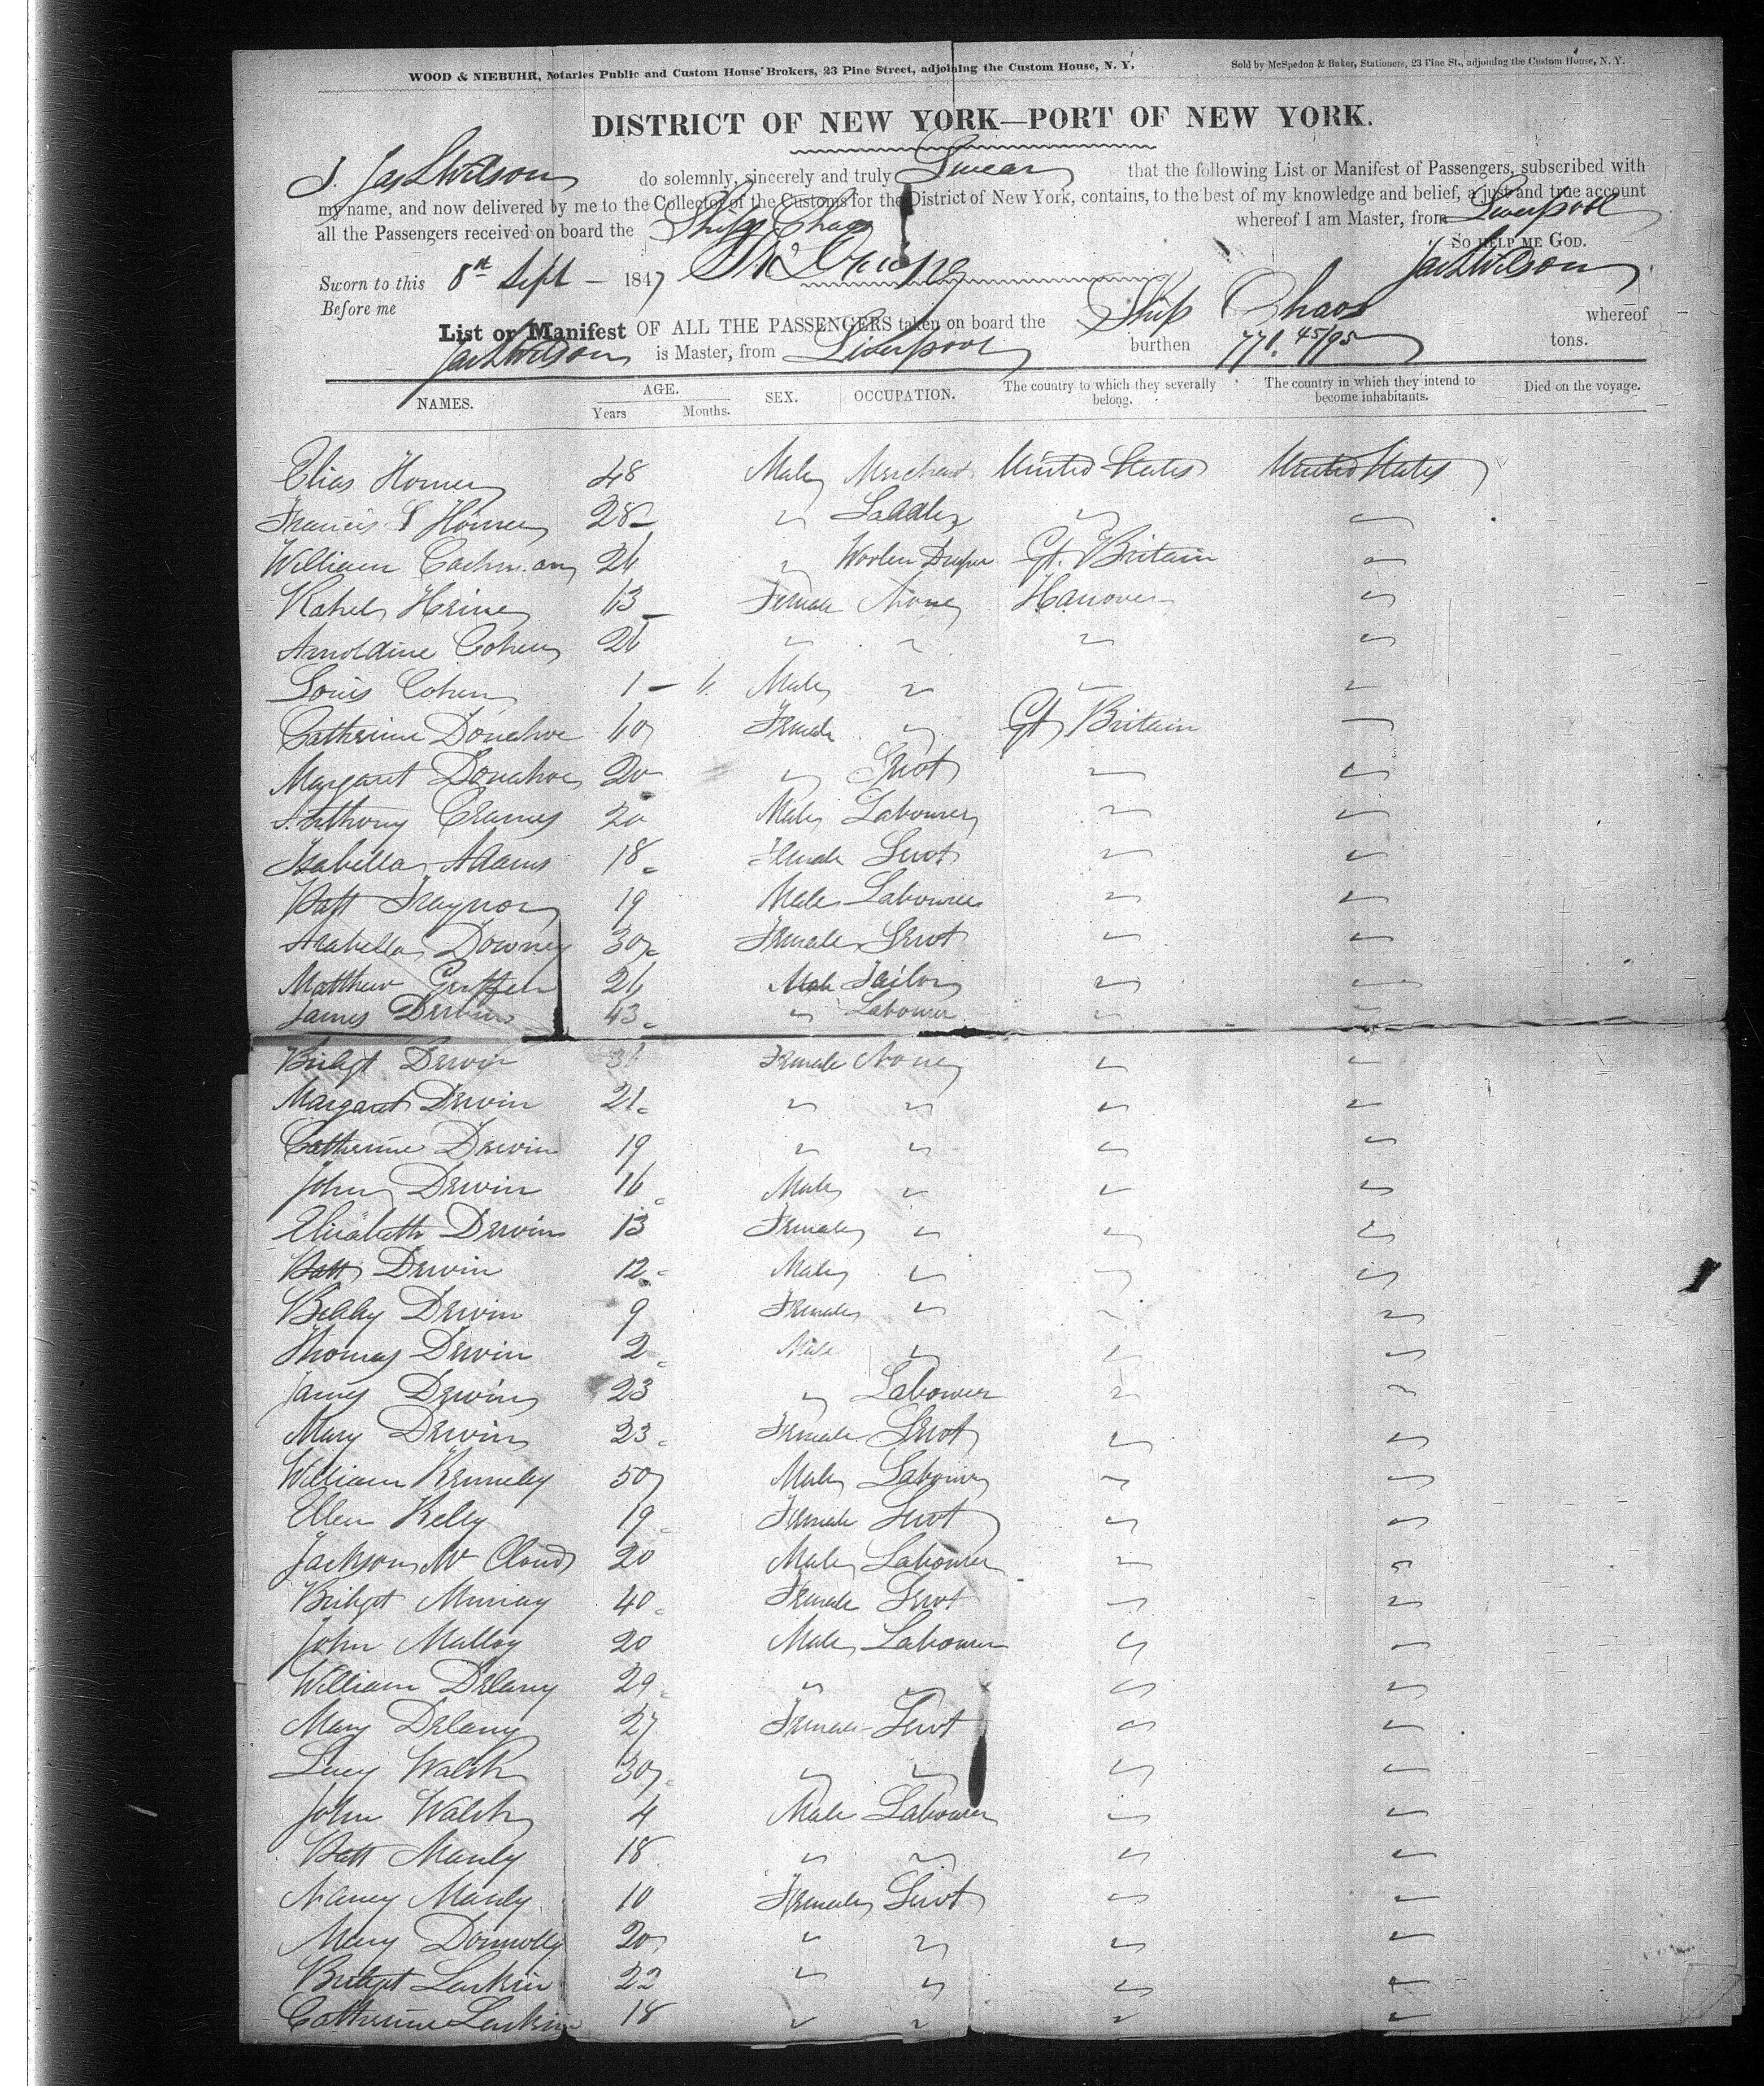 WOOD & NIEBUHR, Notaries Public and Custom House Brokers, 23 Pine Street, adjoining the Custom House, N. Y.
Sold by McSpedon & Baker, Stationers, 23 Pine St., adjoining the Custom House, N. Y.
DISTRICT OF NEW YORK—PORT OF NEW YORK.
I. Jas L Wilson do solemnly, sincerely and truly Swear that the following List or Manifest of Passengers, subscribed with
my name, and now delivered by me to the Collector of the Customs for the District of New York, contains, to the best of my knowledge and belief, a just and true account
all the Passengers received on board the Ship Chaos whereof I am Master, from Liverpool
SO HELP ME GOD.
Sworn to this 8th Sept — 1847 Jas L Wilson
Before me
List or Manifest OF ALL THE PASSENGERS taken on board the Ship Chaos whereof
Jas L Wilson is Master, from Liverpool burthen 771. 45/95 tons.
NAMES. AGE. Years Months. SEX. OCCUPATION. The country to which they severally belong. The country in which they intend to become inhabitants. Died on the voyage.
Elias Homer 48 Male Merchant United States United States
Francis S Homer 28 " Saddler " "
William 26 " Woolen Draper Gt. Britain "
Rahel Heine 13 Female None Hanover "
Arnoldine Cohen 26 " " " "
Louis Cohen 1 - 6 Male " " "
Catherine Donahoe 60 Female " Gt Britain "
Margaret Donahoe 20 " Servt " "
Anthony 20 Male Labourer " "
Isabella Adams 18 Female Servt " "
Patt Traynor 19 Male Labourer " "
Arabella Downey 30 Female Servt " "
Matthew Griffen 26 Male Tailor " "
James Derwin 43 " Labourer " "
Bridgt Derwin 36 Female None " "
Margaret Derwin 21 " " " "
Catherine Derwin 19 " " " "
John Derwin 16 Male " " "
Elizabeth Derwin 13 Female " " "
Patt Derwin 12 Male " " "
Biddy Derwin 9 Female " " "
Thomas Derwin 2 Male " " "
James Derwin 23 " Labourer " "
Mary Derwin 23 Female Servt " "
William Kennedy 50 Male Labourer " "
Ellen Kelly 19 Female Servt " "
Jackson Mc Cloud 20 Male Labourer " "
Bridget Murray 40 Female Servt " "
John Malloy 20 Male Labourer " "
William Delany 29 " " " "
Mary Delany 27 Female Servt " "
Lucy Walsh 30 " " " "
John Walsh 4 Male Labourer " "
Patt Manly 18 " " " "
Nancy Manly 10 Female Servt " "
Mary Donnolly 20 " " " "
Bridget Larkin 22 " " " "
Catherine Larkin 18 " " " "